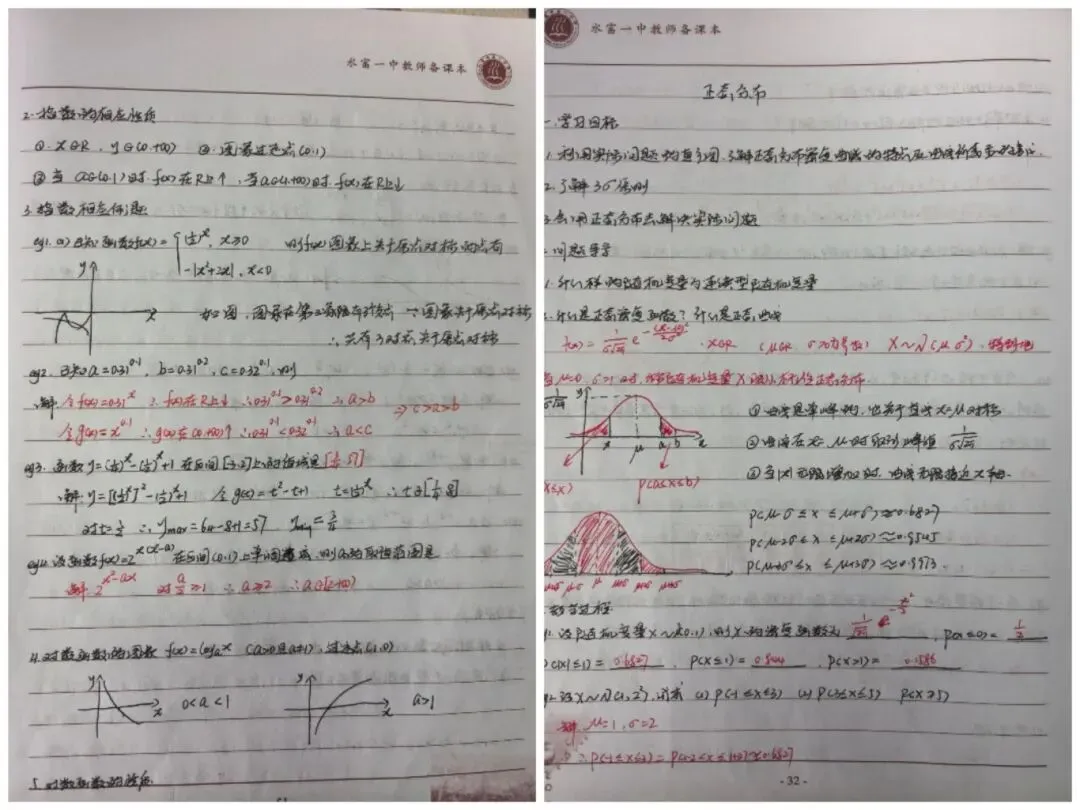 水富一中教师备课本
2.指数的相关性质
①.x∈R, y∈(0,+∞) ②.图象过定点(0,1)
③当 a∈(0,1)时 f(x)在R上↑, 当a∈(1,+∞)时 f(x)在R上↓
3.指数相关问题
eg1.(1)已知函数f(x)= { (½)^x, x≥0 则f(x)图象上关于原点对称的点有
-|x²+2x|, x<0
y
x
如图,图象在第三象限有
图象关于原点对称
∴共有3对点关于原点对称
eg2.已知a=0.31^0.1, b=0.31^0.2, c=0.32^0.1,则
解:令f(x)=0.31^x ∴f(x)在R上↓ ∴0.31^0.1>0.31^0.2 ∴a>b
⇒c>a>b
令g(x)=x^0.1 ∴g(x)在(0,+∞)↑ ∴0.31^0.1<0.32^0.1 ∴a<c
eg3.函数y=(¼)^x-(½)^x+1 在区间[-3,2]上的值域是[¾,57]
解:y=[(½)^x]²-(½)^x+1 令g(t)=t²-t+1 t=(½)^x ∴t∈[¼,8]
对t=½ ∴ymax=64-8+1=57 ymin=¾
eg4.设函数f(x)=2^x(x-a) 在区间(0,1)上单调递减,则a的取值范围是
解:2^x²-ax 对a/2≥1 ∴a≥2 ∴a∈[2,+∞)
4.对数函数的图象 f(x)=logₐx (a>0且a≠1),过定点(1,0)
y
x
0<a<1
y
x
a>1
5.对数函数的性质
水富一中教师备课本
正态分布
一.学习目标
1.利用实际问题的直方图,了解正态分布密度曲线的特点及曲线所表示的意义.
2.了解3σ原则
3.会用正态分布去解决实际问题
问题导学
1.什么样的随机变量为连续型随机变量
2.什么是正态密度函数?什么是正态曲线
f(x)=1/(σ√2π) e^-(x-μ)²/2σ², x∈R (μ∈R, σ>0为参数) X~N(μ,σ²),特别地
当μ=0,σ=1时,称随机变量X服从标准正态分布
1/(σ√2π)
y
x
μ
a
b
x
①曲线是单峰的,它关于直线x=μ对称
②曲线在x=μ时取到峰值 1/(σ√2π)
③当|x|无限增大时,曲线无限接近x轴.
P(a≤x≤b)
P(μ-σ≤x≤μ+σ)≈0.6827
P(μ-2σ≤x≤μ+2σ)≈0.9545
P(μ-3σ≤x≤μ+3σ)≈0.9973.
教学过程
1.设随机变量X~N(0,1),则X的密度函数为 1/√2π e^-x²/2, P(X≤0)= 1/2
P(|X|≤1)= 0.6827, P(X≤1)= 0.8414, P(X>1)= 0.1586
eg2.设X~N(1,2²),试求 (1)P(-1≤X≤3) (2)P(3≤X≤5) P(X≥5)
解:μ=1,σ=2
∴P(-1≤X≤3)=P(1-2≤X≤1+2)≈0.6827
-32-